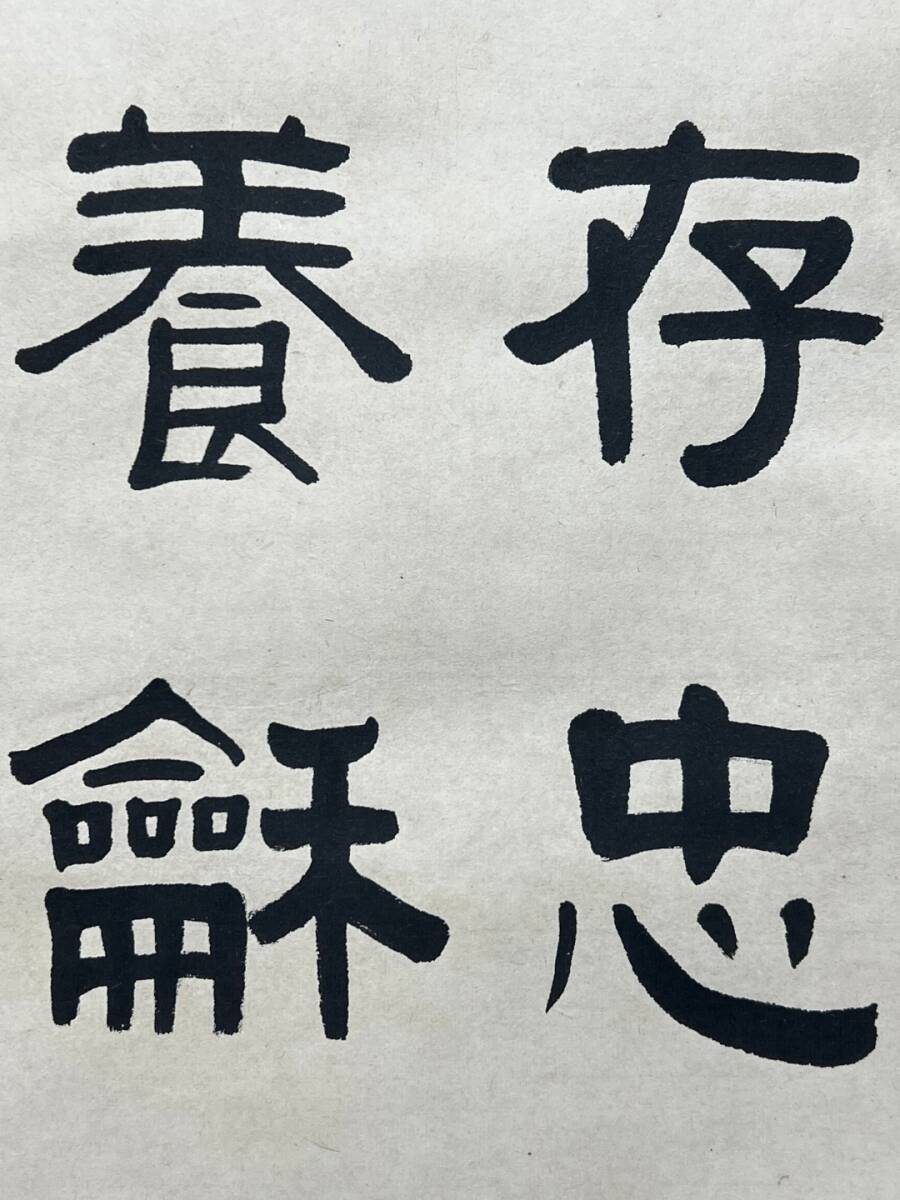 存忠
養龢